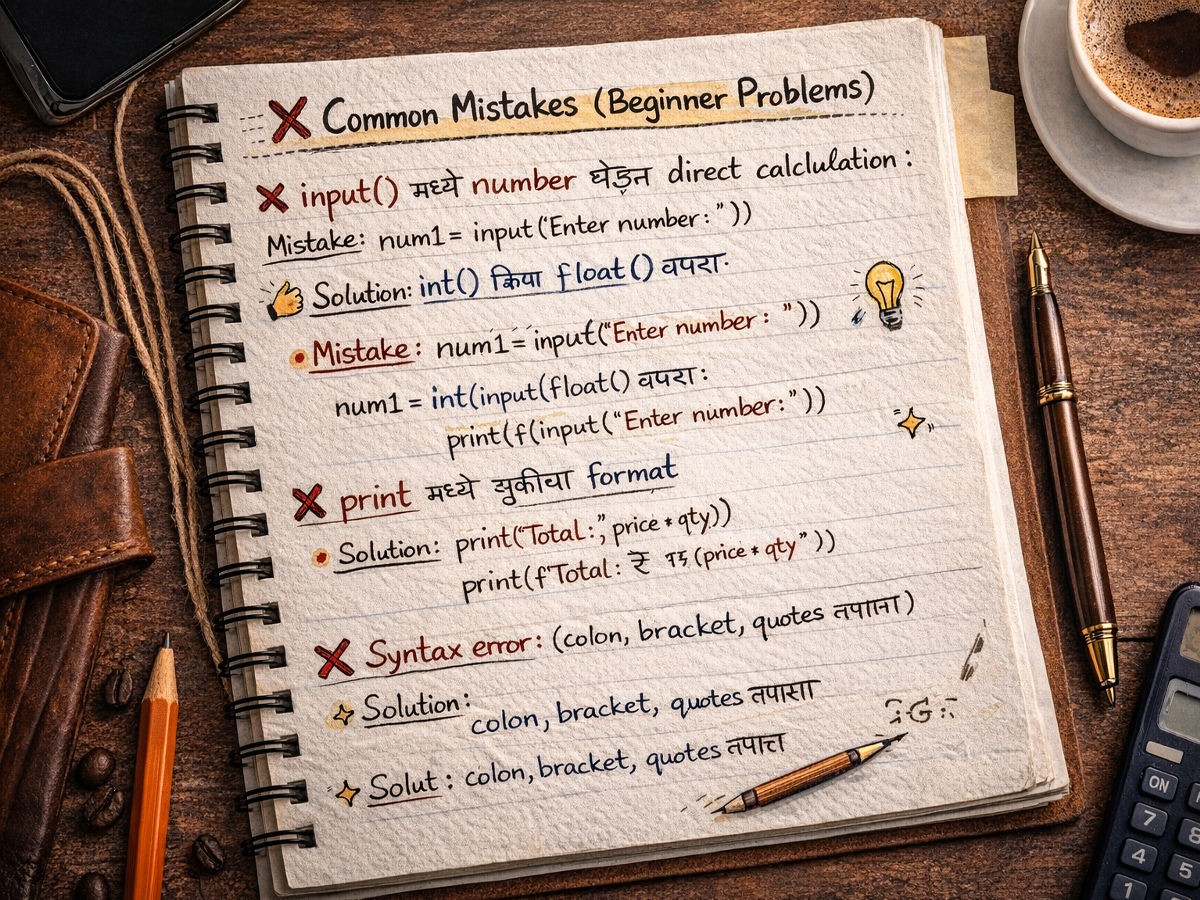 ❌ Common Mistakes (Beginner Problems)
❌ input() मध्ये number घेड़न direct calclulation :
Mistake: num1 = input("Enter number:"))
Solution: int() किंया float() वपरा.
Mistake: num1 = input("Enter number: "))
num1 = int(input(float() वपरा:
print(f(input("Enter number:"))
❌ print मध्ये चुकीचा format
Solution: print("Total:", price * qty))
print(f'Total: ₹ (price * qty"))
❌ Syntax error: (colon, bracket, quotes तपाना)
Solution:
colon, bracket, quotes तपासा
Solut: colon, bracket, quotes तपात्त
ON
7
8
4
5
1